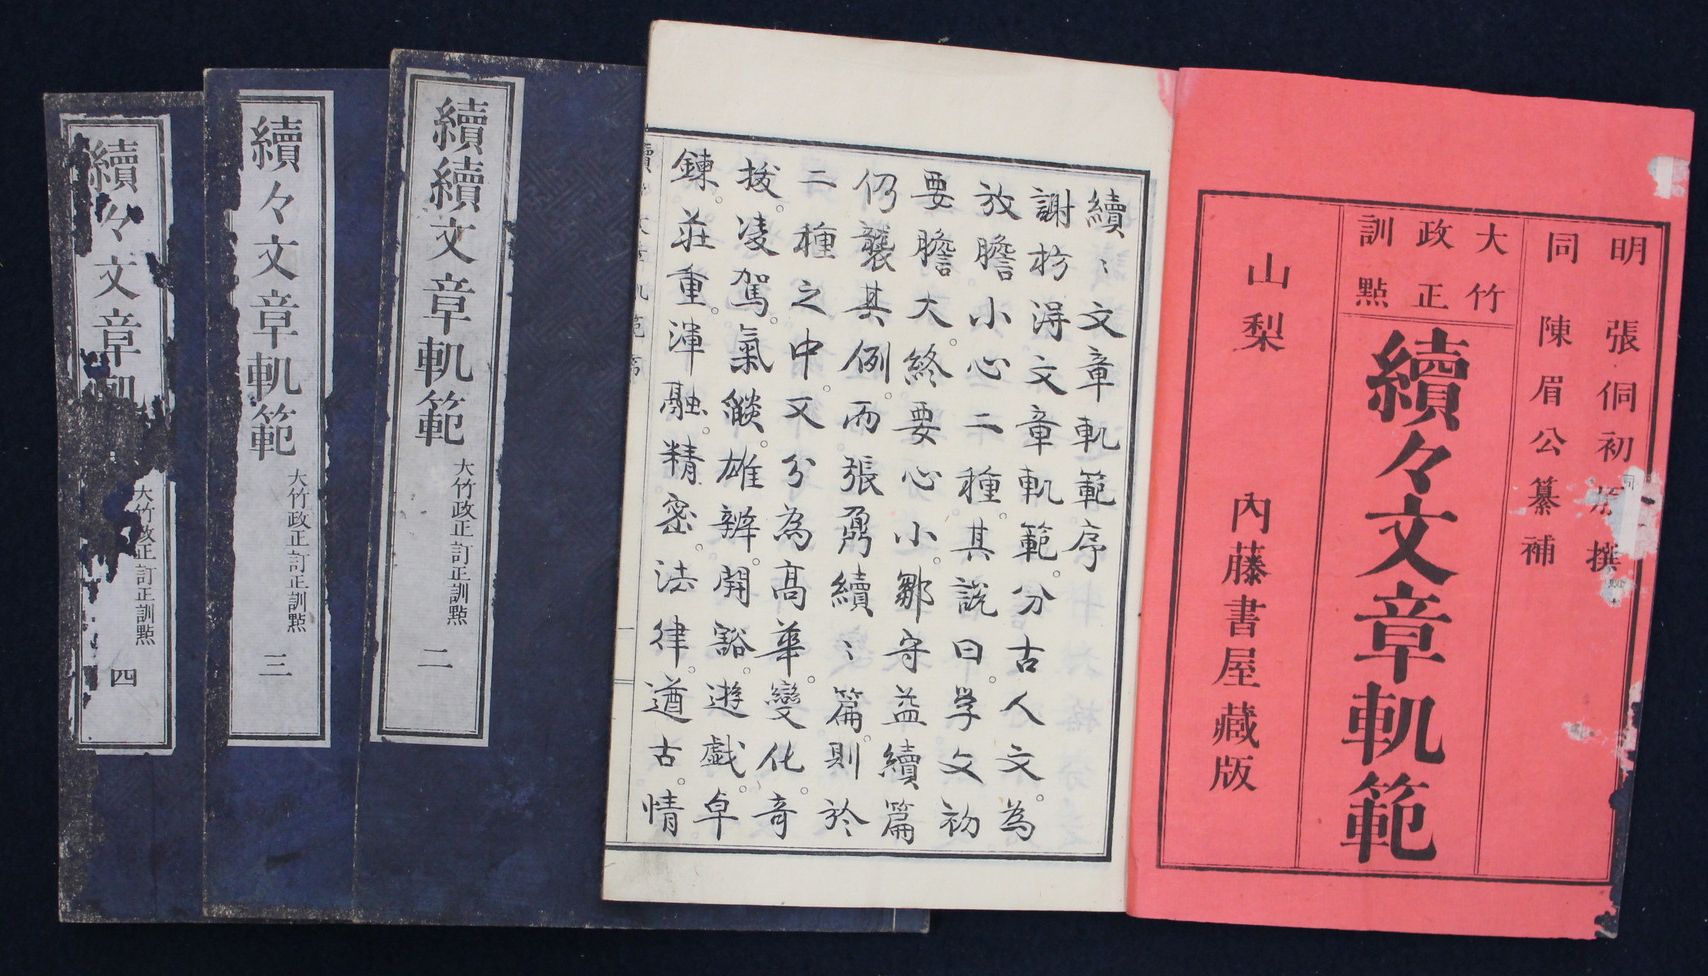 明 張侗初 撰
同 陳眉公纂補
大竹
政正
訓點
續々文章軌範
山梨 內藤書屋藏版
續〻文章軌範序
謝枋得文章軌範。分古人文。為
放膽小心二種。其說曰。學文初
要膽大。終要心小。鄒守益續篇
仍襲其例。而張鼐續〻篇則於
二種之中。又分為高華。變化。奇
拔。凌駕。氣燄。雄辨。開豁。遊戲。卓
鍊。莊重。渾融。精密。法律。遒古。情
續續文章軌範
大竹政正訂正訓點
二
續々文章軌範
大竹政正訂正訓點
三
續々文章軌
大竹政正訂正訓點
四